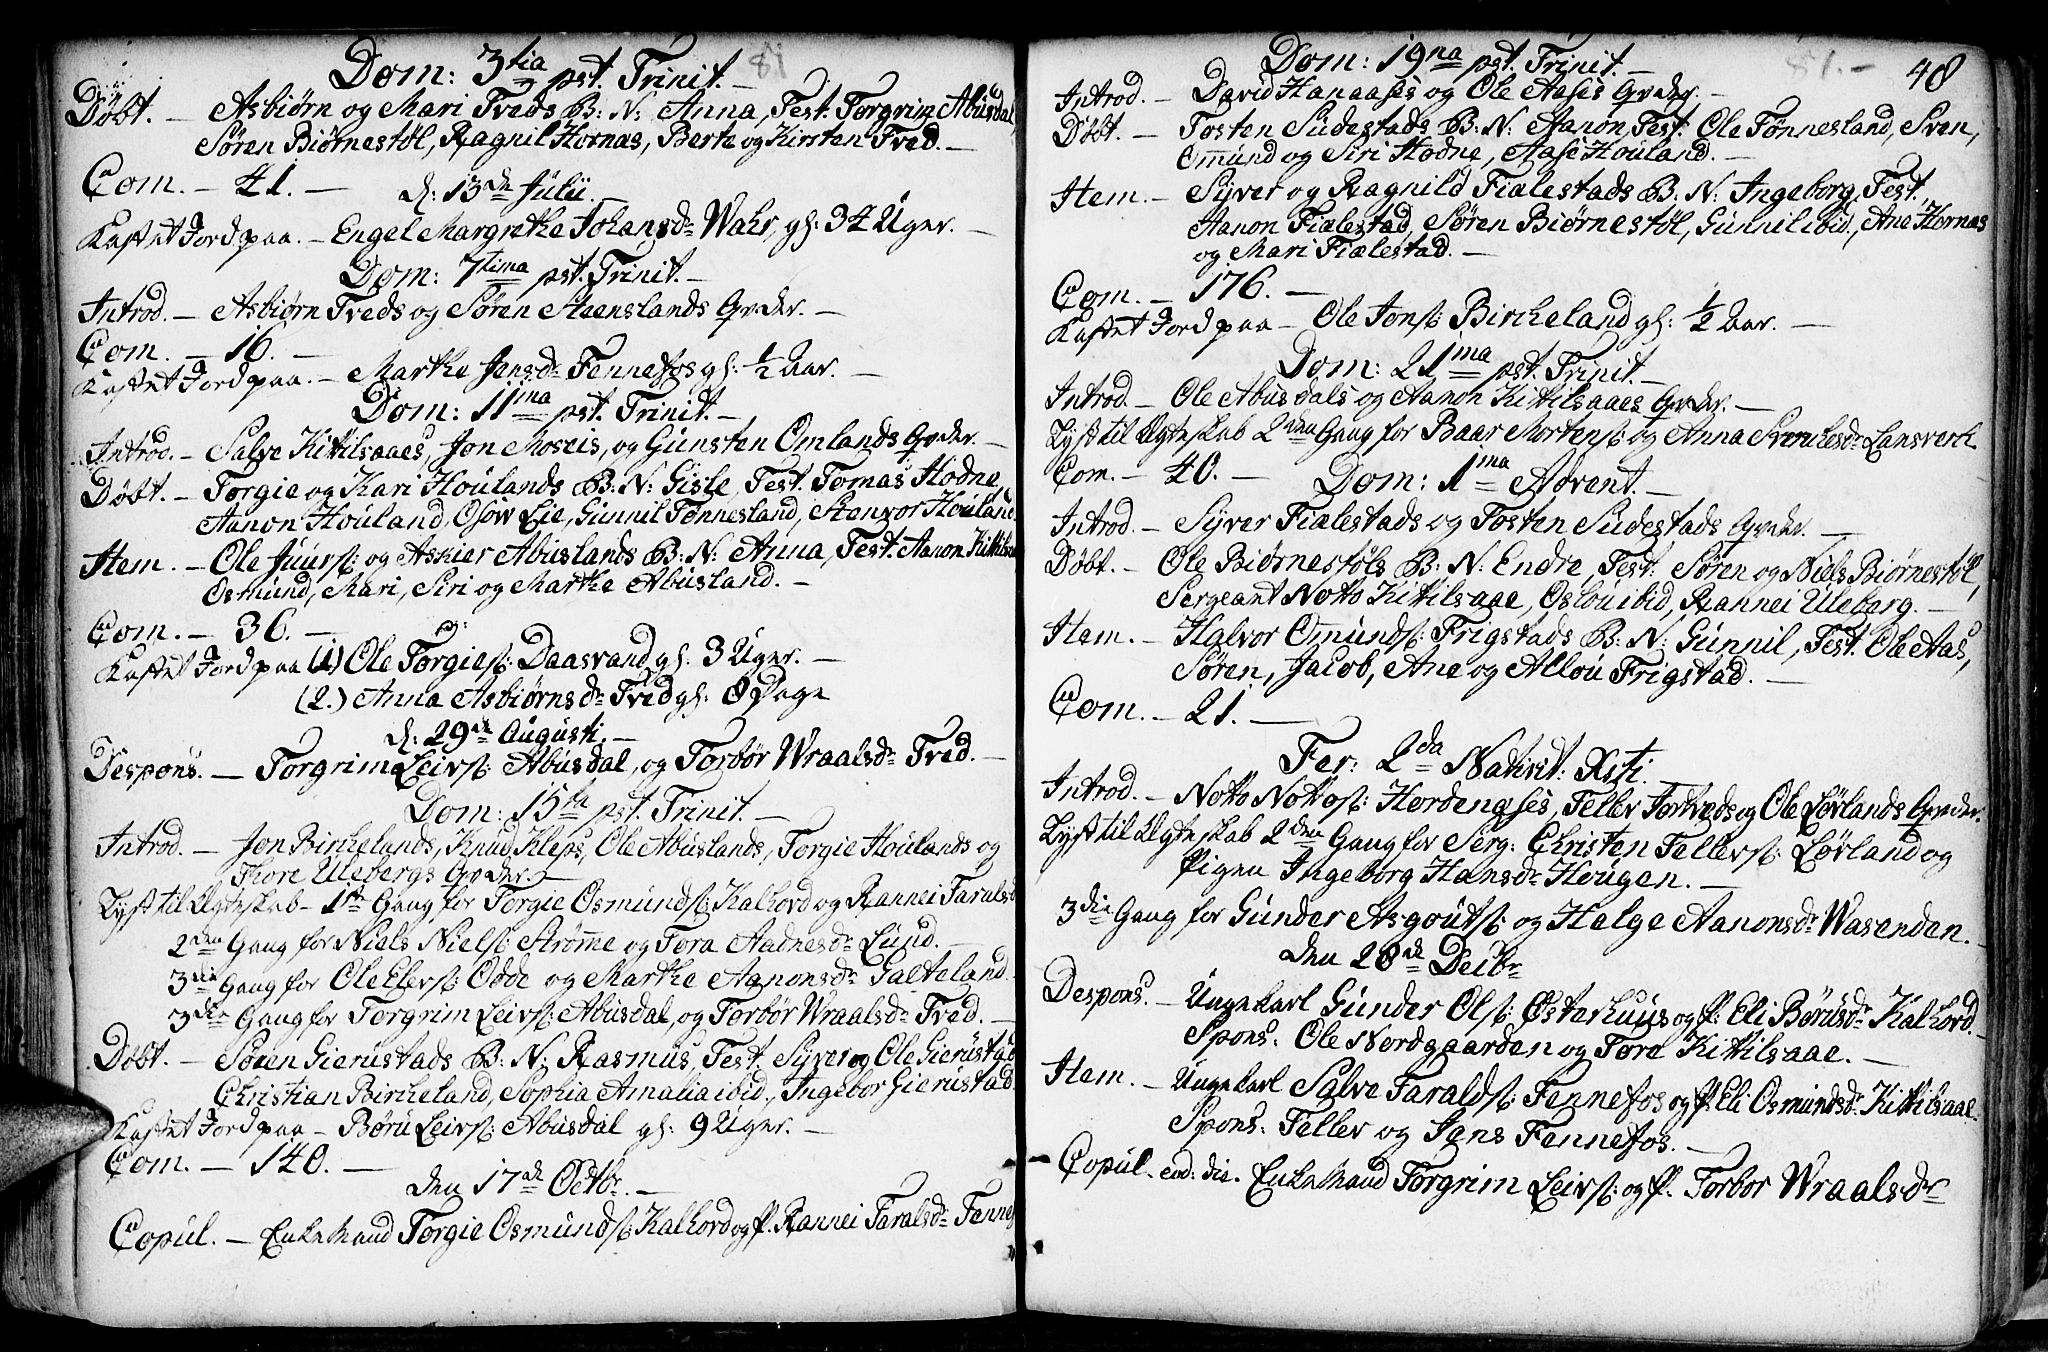 Dom: 3tia pst. Trinit. – 81
Døbt. – Asbiørn og Mari Tveds B: N: Anna, Test. Torgrim Abusdal,
Søren Biørnestøl, Ragnil Hornas, Berte og Kirsten Tved. –
Com. – 41. –
d: 13de Julii.
Kastet Jord paa. – Engel Margrethe Johansdr Wahr, gl: 34 Uger. –
Dom: 7tima pst. Trinit. –
Introd. – Asbiørn Tveds og Søren Steenslands Qvder. –
Com. – 16. –
Kastet Jord paa. – Marthe Jensdr Fennefos gl: 1/2 Aar. –
Dom: 11ma pst. Trinit. –
Introd. – Salve Kittilsaaes, Jon Moseis, og Gunsten Omlands Qvder. –
Døbt. – Torgie og Kari Houlands B: N: Gisle, Test. Tomas Hodne,
Aanon Houland, Osow Lie, Gunnil Tønnesland, Stanvor Houland.
Item. – Ole Juurs: og Askier Abuslands B: N: Anna, Test. Aanon Kittilsaa
Osmund, Mari, Siri og Marthe Abusland. –
Com. – 36. –
Kastet Jord paa (1) Ole Torgies: Daasvand gl: 3 Uger. –
(2.) Anna Asbiørnsdr Tved gl: 8 Dage
d: 29de Augusti. –
Despons. – Torgrim Leivs: Abusdal, og Torbør Wraalsdr Tved. –
Dom: 15ta pst. Trinit. –
Introd. – Jon Birchelands, Knud Kleps, Ole Abuslands, Torgie Houlands og
Thore Ulebergs Qvder. –
Lyst til Ægteskab – 1ste Gang for Torgie Osmunds: Kalhord og Rannei Taralsd
2den Gang for Niels Niels: Strømme og Tora Aadnesdr Lund. –
3die Gang for Ole Ellefs: Odde og Marthe Aanonsdr Galteland. –
3die Gang for Torgrim Leivs: Abusdal, og Torbør Wraalsdr Tved. –
Døbt. – Søren Gierustads B: N: Rasmus, Test. Syver og Ole Gierustad
Christian Bircheland, Sophia Amalia ibid., Ingebor Gierustad.
Kastet Jord paa – Børu Leivs: Abusdal gl: 9 Uger. –
Com. – 140. –
den 17de Octbr. –
Copul. – Enkemand Torgie Osmunds: Kalhord og p. Rannei Taralsdr Fennef
Dom: 19na pst. Trinit. – 81. – 48
Introd. – David Hanaases og Ole Aases Qvder. –
Døbt. – Tosten Sudestads B: N: Aanon, Test. Ole Tønnesland, Sven,
Ommund og Siri Hodne, Aase Houland. –
Item. – Syver og Ragnild Fialestads B: N: Ingeborg, Test.
Aanon Fialestad, Søren Biørnestøl, Gunnil ibid., Ane Hornas
og Mari Fialestad. –
Com. – 176. –
Kastet Jord paa – Ole Jons: Bircheland gl: 1/2 Aar. –
Dom: 21ma pst. Trinit. –
Introd. – Ole Abusdals og Aanon Kittilsaaes Qvder. –
Lyst til Ægteskab 2den Gang for Baar Mortens: og Anna Svenchesdr Lansverk
Com. – 40. – Dom: 1ma Advent. –
Introd. – Syver Fialestads og Tosten Sudestads Qvder. –
Døbt. – Ole Biørnestøls B: N: Endre, Test: Søren og Niels Biørnestøl,
Sergeant Notto Kittilsaae, Oslou ibid, Rannei Uleberg. –
Item. – Halvor Ommunds: Frigstads B: N: Gunnil, Test. Ole Aas,
Søren, Jacob, Ane og Allou Frigstad. –
Com. – 21. –
Fer: 2da Nativit: Xsti.
Introd. – Notto Nottos: Hordenæses, Teller Tortveds og Ole Lørlands Qvder.
Lyst til Ægteskab 2den Gang for Serg: Christen Tellers: Lørland og
Pigen Ingeborg Hansdr Hougen. –
3die Gang for Gunder Asgouts: og Helge Aanonsdr Wasenden. –
den 28de Decbr
Despons. – Ungekarl Gunder Ols: Østerhuus og p: Eli Børusdr Kalhord.
Spons: Ole Nordgaarden og Tore Kittilsaae. –
Item. – Ungekarl Salve Taralds: Fennefos og p. Eli Osmundsdr Kittilsaae.
Spons: Teller og Jens Fennefos. –
Copul. eod: die. Enkemand Torgrim Leivs: og p. Torbor Wraalsdr